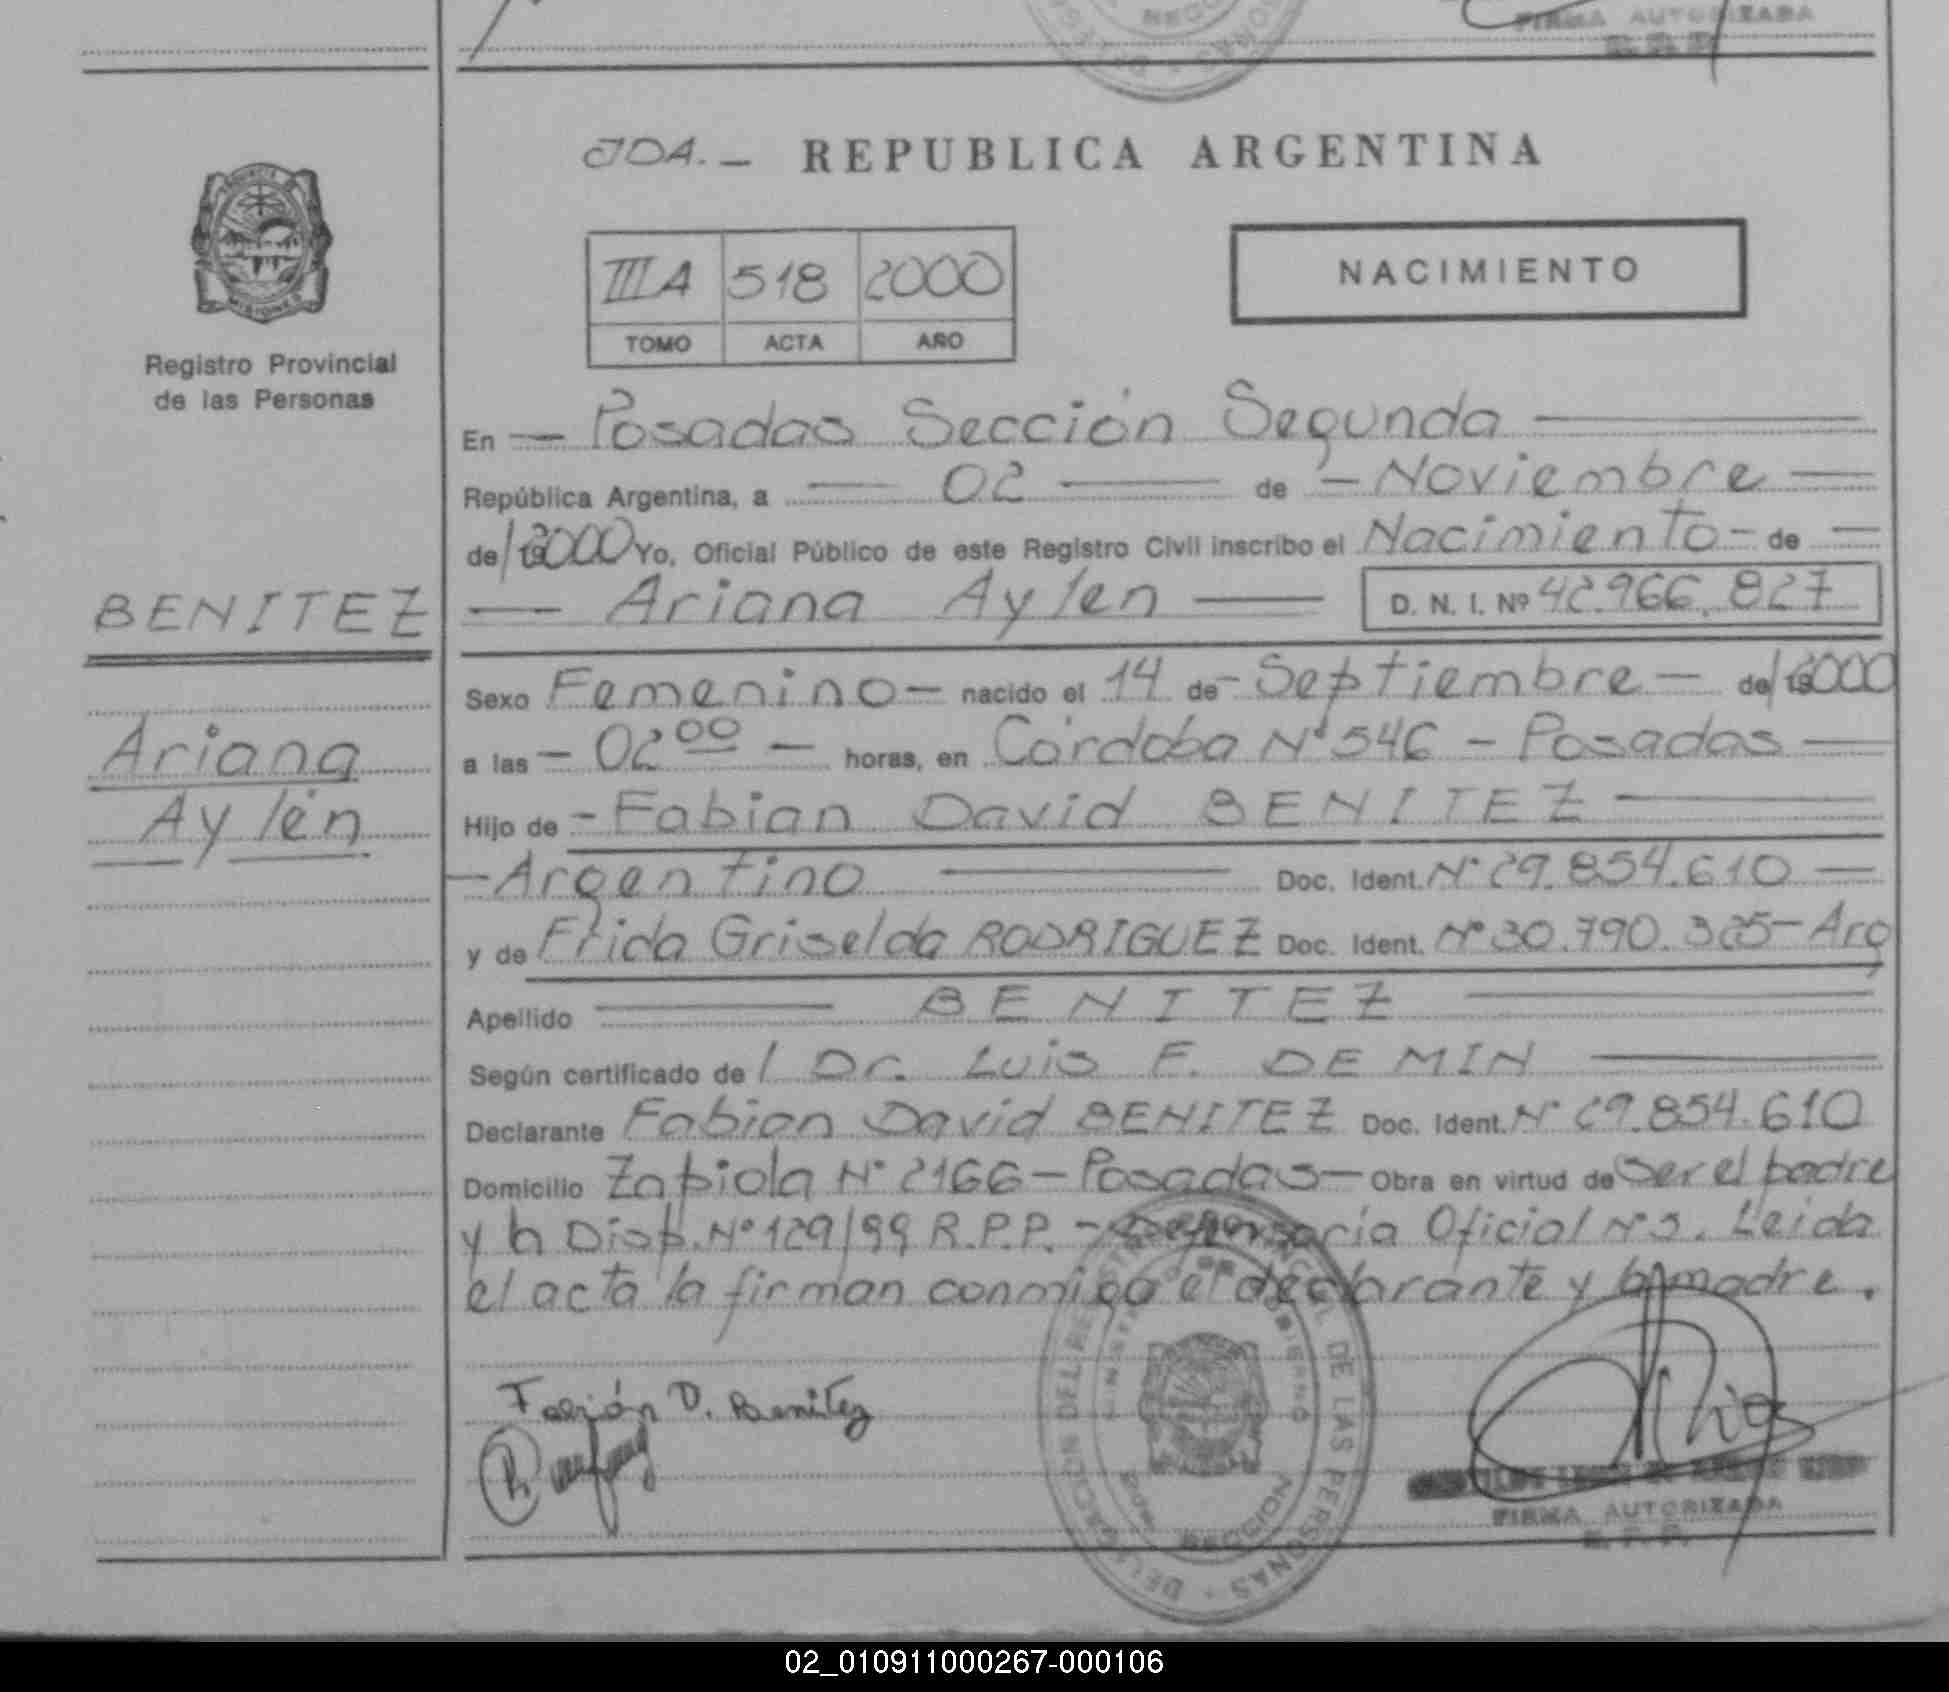 FIRMA AUTORIZADA
JDA.- REPUBLICA ARGENTINA
IIIA 518 2000
TOMO ACTA AÑO
NACIMIENTO
Registro Provincial
de las Personas
En — Posadas Sección Segunda —
República Argentina, a — 02 — de — Noviembre —
de/ 2000 Yo, Oficial Público de este Registro Civil inscribo el Nacimiento - de —
— Ariana Aylen — D. N. I. Nº 42.966.827
BENITEZ
Ariana
Aylén
Sexo Femenino — nacido el 14 de - Septiembre — de/ 2000
a las - 02 00 — horas, en Córdoba Nº 546 - Posadas —
Hijo de - Fabian David BENITEZ —
- Argentino — Doc. Ident. Nº 29.854.610 —
y de Frida Griselda RODRIGUEZ Doc. Ident. Nº 30.790.325 - Arg
Apellido — BENITEZ —
Según certificado de / Dr. Luis F. DE MIN —
Declarante Fabian David BENITEZ Doc. Ident. Nº 29.854.610
Domicilio Zapiola Nº 2166 - Posadas — Obra en virtud de ser el padre
y la Disp. Nº 129/99 R.P.P. - Defensoría Oficial Nº 3. Leida
el acta la firman conmigo el declarante y la madre.
Fabián D. Benitez
DELEGACION DEL REGISTRO PROVINCIAL DE LAS PERSONAS
MINISTERIO DE GOBIERNO
FIRMA AUTORIZADA
R. P. P.
02_010911000267-000106